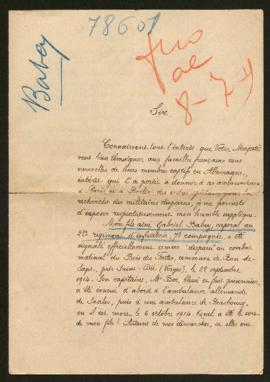 78601
Babey
8-7-
Sire,
Connaissant tous l'intérêt que Votre Majesté
veut bien témoigner, aux familles françaises sans
nouvelles de leurs membres captifs en Allemagne,
intérêt qui L'a portée à donner à ses ambassadeurs
à Paris et à Berlin des ordres spéciaux pour la
recherche des militaires disparus, je me permets
d'exposer respectueusement mon humble supplique.
Mon fils aîné Gabriel Babey, caporal au
213 régiment d'infanterie, 19 compagnie a été
signalé officiellement comme "disparu" au combat
matinal du Bois des Faites, commune de Ban de
Sapt, près Saint-Dié (Vosges), le 22 septembre
1914. Son capitaine, Mr Boé, blessé en fait prisonnier,
a été évacué d'abord à l'ambulance allemande
de Saales, puis à une ambulance de Strasbourg,
où il est mort le 6 octobre 1914. Quel a été le sort
de mon fils? Toutes mes démarches, et elles ont